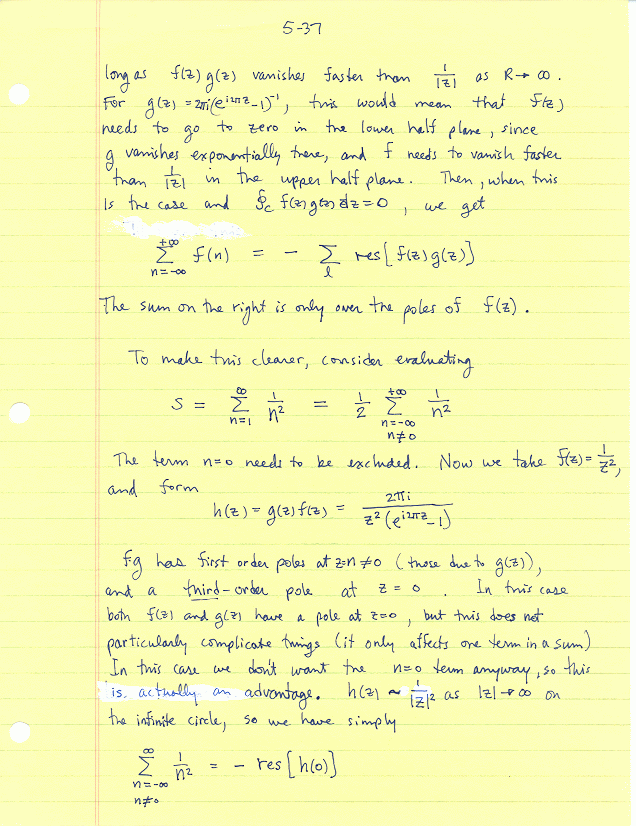 5-37
long as f(z) g(z) vanishes faster than 1/|z| as R→∞.
For g(z) = 2πi(e^{i2πz}-1)^{-1}, this would mean that f(z)
needs to go to zero in the lower half plane, since
g vanishes exponentially there, and f needs to vanish faster
than 1/|z| in the upper half plane. Then, when this
is the case and ∮_C f(z)g(z)dz = 0, we get
∑_{n=-∞}^{+∞} f(n) = - ∑_l res[f(z)g(z)]
The sum on the right is only over the poles of f(z).
To make this clearer, consider evaluating
S = ∑_{n=1}^{∞} 1/n² = 1/2 ∑_{n=-∞ n≠0}^{+∞} 1/n²
The term n=0 needs to be excluded. Now we take f(z) = 1/z²,
and form
h(z) = g(z)f(z) = 2πi / z²(e^{i2πz}-1)
f·g has first order poles at z=n≠0 (those due to g(z)),
and a third-order pole at z=0. In this case
both f(z) and g(z) have a pole at z=0, but this does not
particularly complicate things (it only affects one term in a sum)
In this case we don't want the n=0 term anyway, so this
is actually an advantage. h(z) ~ 1/|z|² as |z|→∞ on
the infinite circle, so we have simply
∑_{n=-∞ n≠0}^{∞} 1/n² = - res[h(0)]